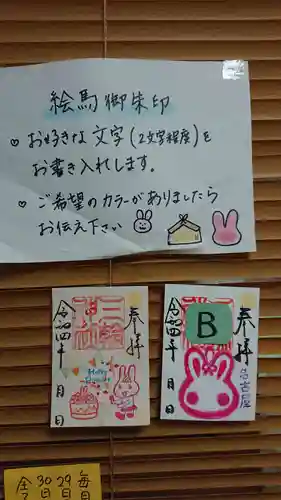 絵馬御朱印
♡お好きな文字(2文字程度)を
お書き入れします。
♡ご希望のカラーがありましたら
お伝え下さい
奉拝
三輪
令和四年 月 日
Happy
奉拝
B
令和四年 月 日
名古屋
毎月
29日
30日